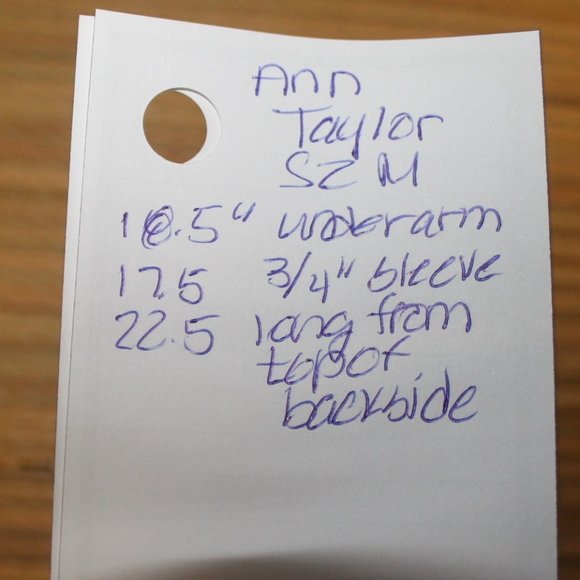 Ann
Taylor
SZ M
" underarm
17.5 3/4" sleeve
22.5 long from
top of
backside